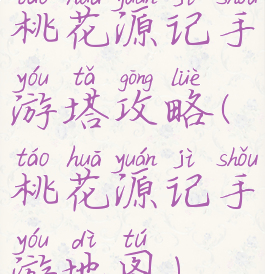 táo huā yuán jì shǒu
桃花源记手
yóu tǎ gōng lüè
游塔攻略(
táo huā yuán jì shǒu
桃花源记手
yóu dì tú
游地图)